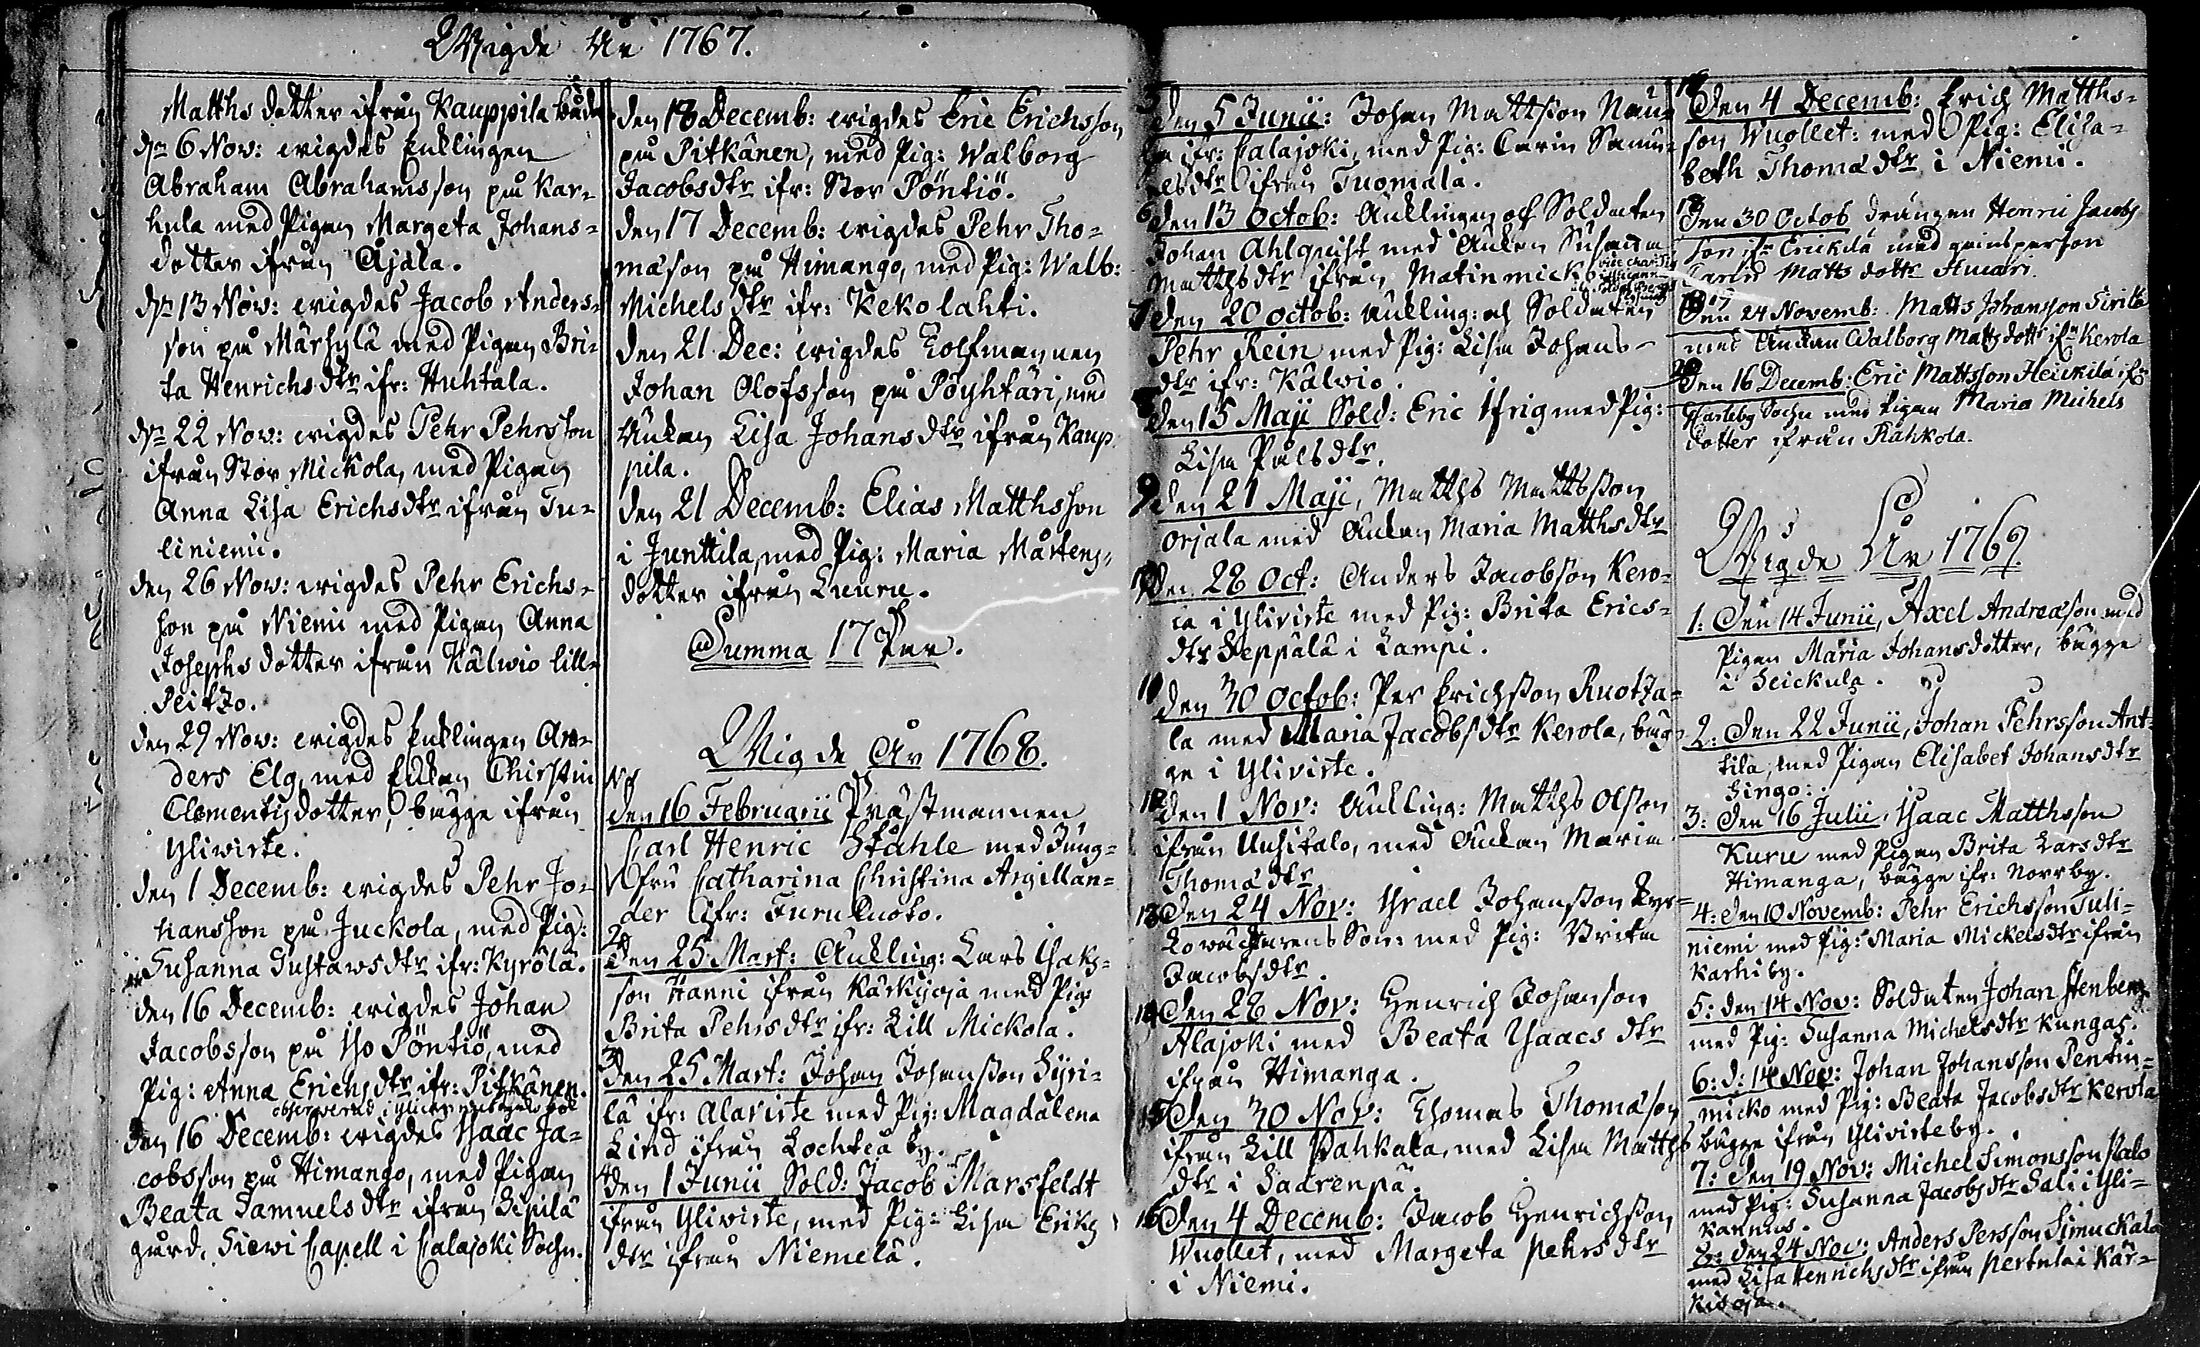 Wigde År 1767.
Matths dotter ifrån Kauppila båda
den 6 Nov: wigdes Enklingen
Abraham Abrahamsson på Kar-
hula med Pigan Margeta Johans-
dotter ifrån Ajala.
den 13 Nov: wigdes Jacob Anders-
son på Märsylä med Pigan Bri-
ta Henrichs dtr ifr: Huhtala.
den 22 Nov: wigdes Pehr Pehrsson
ifrån Stor Mickola, med Pigan
Anna Lisa Erichsdtr ifrån Tu-
liniemi.
den 26 Nov: wigdes Pehr Erichs-
son på Niemi med Pigan Anna
Josephs dotter ifrån Kälwio lill-
Peitzo.
den 29 Nov: wigdes Enklingen An-
ders Elg, med Enkan Chirstin
Clementzdotter, bägge ifrån
Yliwiste.
den 1 Decemb: wigdes Pehr Jo-
hansson på Juckola, med Pig:
Susanna Gustawsdtr ifr: Kyrölä.
den 16 Decemb: wigdes Johan
Jacobsson på Iso Pöntiö, med
Pig: Anna Erichsdtr ifr: Pitkänen.
den 16 Decemb: wigdes Isaac Ja-
cobsson på Himango, med Pigan
Beata Samuelsdtr ifrån Sipilä
gård, Siewi Capell i Calajoki Sochn.
den 13 Decemb: wigdes Eric Erichsson
på Pitkänen, med Pig: Walborg
Jacobsdtr ifr: Stor Pöntiö.
den 17 Decemb: wigdes Pehr Tho-
mæson på Himango, med Pig: Walb:
Michelsdtr ifr: Kekolahti.
den 21 Dec: wigdes Tolfmannen
Johan Olofsson på Pöyhtäri, med
Enkan Lisa Johansdtr ifrån Kaup
pila.
den 21 Decemb: Elias Matthsson
i Junttila, med Pig: Maria Mårtens-
dotter ifrån Kuuru.
Summa 17 Par.
Wigde År 1768.
No 1
den 16 Februarii Prästmannen
Carl Henric Ståhle med Jung-
fru Catharina Christina Argillan-
der ifr: Furuluoto.
2
den 25 Mart: Enkling: Lars Isaks-
son Hanni ifrån Kärkisoja med Pig:
Brita Pehrsdtr ifr: Lill Mickola.
3
den 25 Mart: Johan Johansson Syri-
lä ifr: Alawiste med Pig: Magdalena
Lind ifrån Lochteå by.
4
den 1 Junii Sold: Jacob Marsfeldt
ifrån Yliwiste, med Pig: Lisa Eriks
dtr ifrån Niemelä.
5
den 5 Junii: Johan Mattsson Nau-
ha ifr: Calajoki, med Pig: Carin Samu-
elsdtr ifrån Tuomala.
6
den 13 Octob: Enklingen och Soldaten
Johan Ahlquist med Enkan Susanna
Matthsdtr ifrån Matinmicko
7
den 20 Octob: Enkling: och Soldaten
Pehr Rein med Pig: Lisa Johans-
dtr ifr: Kälwio.
8
den 15 Maji Sold: Eric Ifrig med Pig:
Lisa Pålsdtr.
9
den 21 Maji, Matths Mattsson
Orjala med Enkan Maria Matthsdtr
10
den 28 Oct: Anders Jacobson Kero-
la i Yliviste med Pig: Brita Erics-
dtr Seppälä i Lampi.
11
den 30 Octob: Per Erichsson Ruotza-
la med Maria Jacobsdtr Kerola, bäg-
ge i Yliviste.
12
den 1 Nov: Enkling: Matths Olsson
ifrån Uusitalo, med Enkan Maria
Thomædtr
13
den 24 Nov: Israel Johansson Kyr-
kowachtarens Son: med Pig: Brita
Jacobsdtr.
14
den 28 Nov: Henrich Johanson
Alajoki med Beata Isaacs dtr
ifrån Himanga.
15
den 30 Nov: Thomas Thomæson
ifrån Lill Pahkala, med Lisa Matths
dtr i Saarenpä.
16
den 4 Decemb: Jacob Henrichsson
Wuollet, med Margeta Pehrsdtr
i Niemi.
17
den 4 Decemb: Erich Matths-
son Wuollet: med Pig: Elisa-
beth Thomædtr i Niemi.
18
den 30 Octob drängen Henric Jacobs
son ifr Erickilä med qwinsperson
Carin Matts dottr Huari.
19
den 24 Novemb: Matts Johansson Sirilä
med Enkan Walborg Mattsdottr ifr Kerola
20
den 16 Decemb: Eric Mattsson Heickilä ifr
Carleby Sochn med Pigan Maria Michels
dotter ifrån Rahkola.
Wigde År 1769.
1: Den 14 Junii, Axel Andreæson med
Pigan Maria Johansdotter, bägge
i Heickula.
2: Den 22 Junii, Johan Pehrsson Ant-
tila, med Pigan Elisabet Johansdtr
Hingo:
3: Den 16 Julii, Isaac Matthsson
Kuru med Pigan Brita Larsdtr
Himanga, bägge ifr: Norrby.
4: den 10 Novemb: Pehr Erichsson Tuli-
niemi med Pig: Maria Mickelsdtr ifrån
Karhi by.
5: den 14 Nov: Soldaten Johan Stenberg
med Pig: Susanna Michelsdtr Kungas.
6: d: 14 Nov: Johan Johansson Pentin-
micko med Pig: Beata Jacobsdtr Kerola
bägge ifrån Yliwiste by.
7: den 19 Nov: Michel Simonsson Palo
med Pig: Susanna Jacobsdtr Sali i Yli-
kannus.
8: den 24 Nov: Anders Persson Simuckala
med Lisa Henrichsdtr ifrån Pertula i Kär-
kisoja.